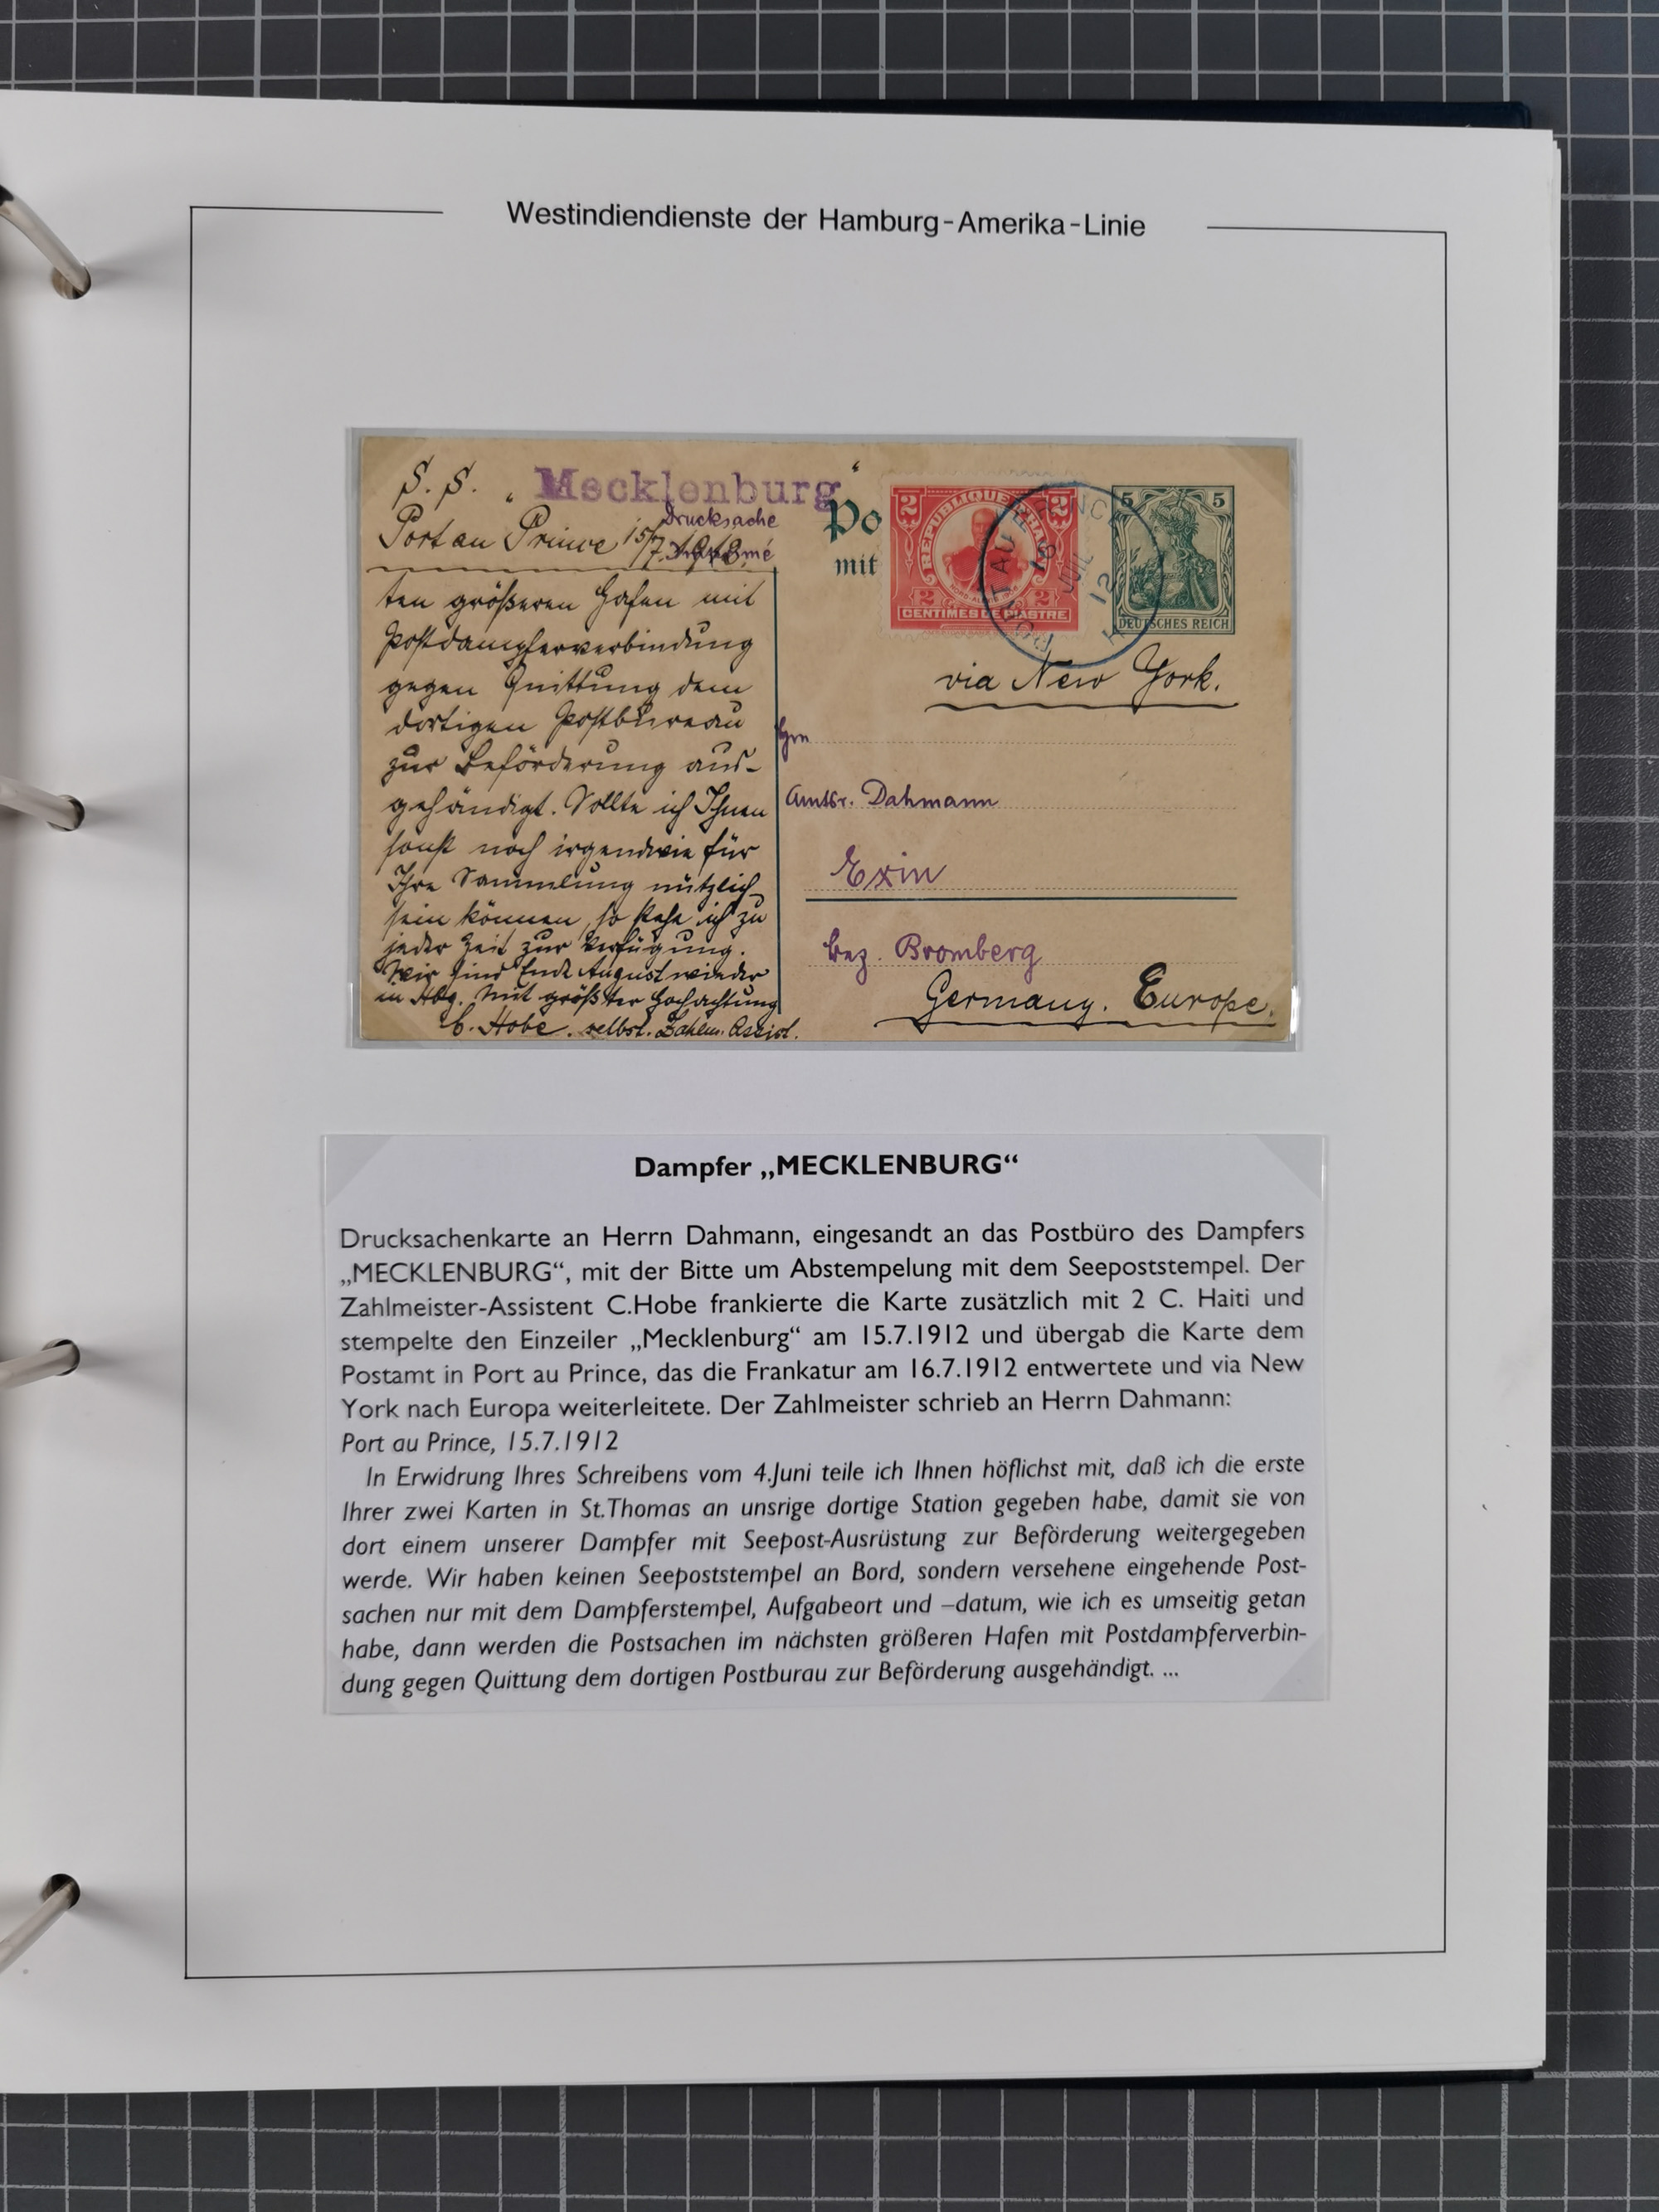 Westindiendienste der Hamburg-Amerika-Linie
S. S. „Mecklenburg“
Drucksache
Port au Prince 15/7. 1912.
ten größeren Hafen mit
Postdampferverbindung
gegen Quittung dem
dortigen Postbureau
zur Beförderung aus-
gehändigt. Sollte ich Ihnen
sonst noch irgendwie für
Ihre Sammlung nützlich
sein können, so stehe ich zu
jeder Zeit zur Verfügung.
Wir sind Ende August wieder
in Hbg. Mit größter Hochachtung
C. Hobe. selbst. Zahlm. Assist.
Po
mit
2 REPUBLIQUE D'HAITI 2
NORD-ALEXIS
2 2
CENTIMES DE PIASTRE
PORT AU PRINCE
16
JUIL
12
5 5
DEUTSCHES REICH
via New York.
Hrn
Amtsr. Dahmann
Exin
bez. Bromberg
Germany. Europe.
Dampfer „MECKLENBURG“
Drucksachenkarte an Herrn Dahmann, eingesandt an das Postbüro des Dampfers
„MECKLENBURG“, mit der Bitte um Abstempelung mit dem Seepoststempel. Der
Zahlmeister-Assistent C.Hobe frankierte die Karte zusätzlich mit 2 C. Haiti und
stempelte den Einzeiler „Mecklenburg“ am 15.7.1912 und übergab die Karte dem
Postamt in Port au Prince, das die Frankatur am 16.7.1912 entwertete und via New
York nach Europa weiterleitete. Der Zahlmeister schrieb an Herrn Dahmann:
Port au Prince, 15.7.1912
In Erwidrung Ihres Schreibens vom 4.Juni teile ich Ihnen höflichst mit, daß ich die erste
Ihrer zwei Karten in St.Thomas an unsrige dortige Station gegeben habe, damit sie von
dort einem unserer Dampfer mit Seepost-Ausrüstung zur Beförderung weitergegeben
werde. Wir haben keinen Seepoststempel an Bord, sondern versehene eingehende Post-
sachen nur mit dem Dampferstempel, Aufgabeort und –datum, wie ich es umseitig getan
habe, dann werden die Postsachen im nächsten größeren Hafen mit Postdampferverbin-
dung gegen Quittung dem dortigen Postburau zur Beförderung ausgehändigt. ...